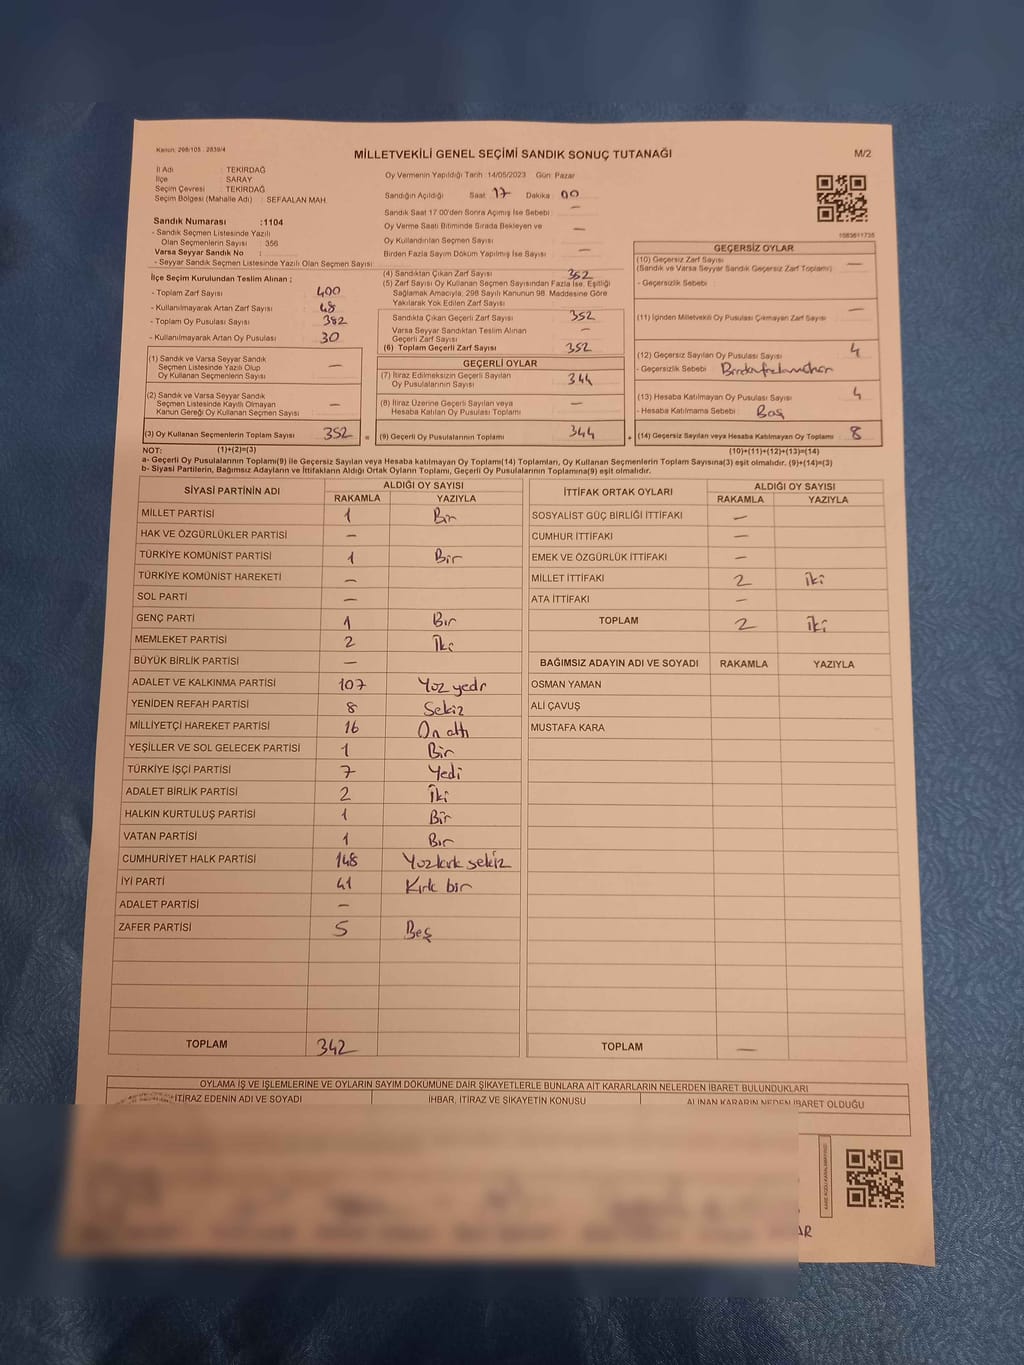 Kanun: 298/105 , 2839/4
MİLLETVEKİLİ GENEL SEÇİMİ SANDIK SONUÇ TUTANAĞI
M/2
İl Adı : TEKİRDAĞ
İlçe : SARAY
Seçim Çevresi : TEKİRDAĞ
Seçim Bölgesi (Mahalle Adı) : SEFAALAN MAH
Sandık Numarası :1104
- Sandık Seçmen Listesinde Yazılı
Olan Seçmenlerin Sayısı : 356
Varsa Seyyar Sandık No :
- Seyyar Sandık Seçmen Listesinde Yazılı Olan Seçmen Sayısı:
İlçe Seçim Kurulundan Teslim Alınan ;
- Toplam Zarf Sayısı 400
- Kullanılmayarak Artan Zarf Sayısı 48
- Toplam Oy Pusulası Sayısı 382
- Kullanılmayarak Artan Oy Pusulası 30
(1) Sandık ve Varsa Seyyar Sandık
Seçmen Listesinde Yazılı Olup
Oy Kullanan Seçmenlerin Sayısı —
(2) Sandık ve Varsa Seyyar Sandık
Seçmen Listesinde Kayıtlı Olmayan
Kanun Gereği Oy Kullanan Seçmen Sayısı —
(3) Oy Kullanan Seçmenlerin Toplam Sayısı 352 =
Oy Vermenin Yapıldığı Tarih :14/05/2023 Gün: Pazar
Sandığın Açıldığı Saat: 17 Dakika : 00
Sandık Saat 17.00'den Sonra Açımış İse Sebebi : —
Oy Verme Saati Bitiminde Sırada Bekleyen ve
Oy Kullandırılan Seçmen Sayısı —
Birden Fazla Sayım Döküm Yapılmış İse Sayısı —
(4) Sandıktan Çıkan Zarf Sayısı 352
(5) Zarf Sayısı Oy Kullanan Seçmen Sayısından Fazla İse, Eşitliği
Sağlamak Amacıyla, 298 Sayılı Kanunun 98. Maddesine Göre
Yakılarak Yok Edilen Zarf Sayısı:
Sandıkta Çıkan Geçerli Zarf Sayısı 352
Varsa Seyyar Sandıktan Teslim Alınan
Geçerli Zarf Sayısı —
(6) Toplam Geçerli Zarf Sayısı 352
GEÇERLİ OYLAR
(7) İtiraz Edilmeksizin Geçerli Sayılan
Oy Pusulalarının Sayısı 344
(8) İtiraz Üzerine Geçerli Sayılan veya
Hesaba Katılan Oy Pusulaları Toplamı —
(9) Geçerli Oy Pusulalarının Toplamı 344 +
1583611735
GEÇERSİZ OYLAR
(10) Geçersiz Zarf Sayısı
(Sandık ve Varsa Seyyar Sandık Geçersiz Zarf Toplamı) —
- Geçersizlik Sebebi :
(11) İçinden Milletvekili Oy Pusulası Çıkmayan Zarf Sayısı —
(12) Geçersiz Sayılan Oy Pusulası Sayısı 4
- Geçersizlik Sebebi
(13) Hesaba Katılmayan Oy Pusulası Sayısı 4
- Hesaba Katılmama Sebebi : Boş
(14) Geçersiz Sayılan veya Hesaba Katılmayan Oy Toplamı 8
NOT: (1)+(2)=(3) (10)+(11)+(12)+(13)=(14)
a- Geçerli Oy Pusulalarının Toplamı(9) ile Geçersiz Sayılan veya Hesaba katılmayan Oy Toplamı(14) Toplamları, Oy Kullanan Seçmenlerin Toplam Sayısına(3) eşit olmalıdır. (9)+(14)=(3)
b- Siyasi Partilerin, Bağımsız Adayların ve İttifakların Aldığı Ortak Oyların Toplamı, Geçerli Oy Pusulalarının Toplamına(9) eşit olmalıdır.
SİYASİ PARTİNİN ADI ALDIĞI OY SAYISI
RAKAMLA YAZIYLA
MİLLET PARTİSİ 1 Bir
HAK VE ÖZGÜRLÜKLER PARTİSİ —
TÜRKİYE KOMÜNİST PARTİSİ 1 Bir
TÜRKİYE KOMÜNİST HAREKETİ —
SOL PARTİ —
GENÇ PARTİ 1 Bir
MEMLEKET PARTİSİ 2 İki
BÜYÜK BİRLİK PARTİSİ —
ADALET VE KALKINMA PARTİSİ 107 Yüz yedi
YENİDEN REFAH PARTİSİ 8 Sekiz
MİLLİYETÇİ HAREKET PARTİSİ 16 On altı
YEŞİLLER VE SOL GELECEK PARTİSİ 1 Bir
TÜRKİYE İŞÇİ PARTİSİ 7 Yedi
ADALET BİRLİK PARTİSİ 2 İki
HALKIN KURTULUŞ PARTİSİ 1 Bir
VATAN PARTİSİ 1 Bir
CUMHURİYET HALK PARTİSİ 148 Yüzkırk sekiz
İYİ PARTİ 41 Kırk bir
ADALET PARTİSİ —
ZAFER PARTİSİ 5 Beş
TOPLAM 342
İTTİFAK ORTAK OYLARI ALDIĞI OY SAYISI
RAKAMLA YAZIYLA
SOSYALİST GÜÇ BİRLİĞİ İTTİFAKI —
CUMHUR İTTİFAKI —
EMEK VE ÖZGÜRLÜK İTTİFAKI —
MİLLET İTTİFAKI 2 İki
ATA İTTİFAKI —
TOPLAM 2 İki
BAĞIMSIZ ADAYIN ADI VE SOYADI RAKAMLA YAZIYLA
OSMAN YAMAN
ALİ ÇAVUŞ
MUSTAFA KARA
TOPLAM —
OYLAMA İŞ VE İŞLEMLERİNE VE OYLARIN SAYIM DÖKÜMÜNE DAİR ŞİKAYETLERLE BUNLARA AİT KARARLARIN NELERDEN İBARET BULUNDUKLARI
İTİRAZ EDENİN ADI VE SOYADI İHBAR, İTİRAZ VE ŞİKAYETİN KONUSU ALINAN KARARIN NEDEN İBARET OLDUĞU